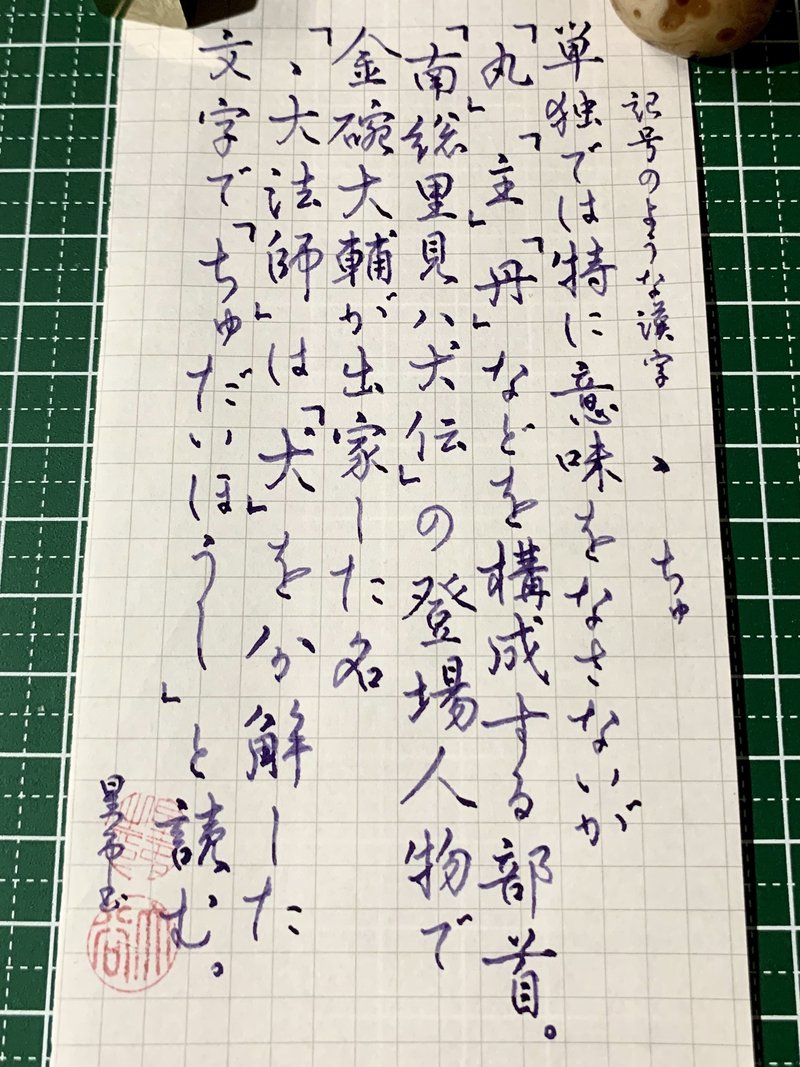 記号のような漢字 丶 ちゅ
単独では特に意味をなさないが
「丸」「主」「丹」などを構成する部首。
「南総里見八犬伝」の登場人物で
金碗大輔が出家した名
「丶大法師」は「犬」を分解した
文字で「ちゅだいほうし」と読む。